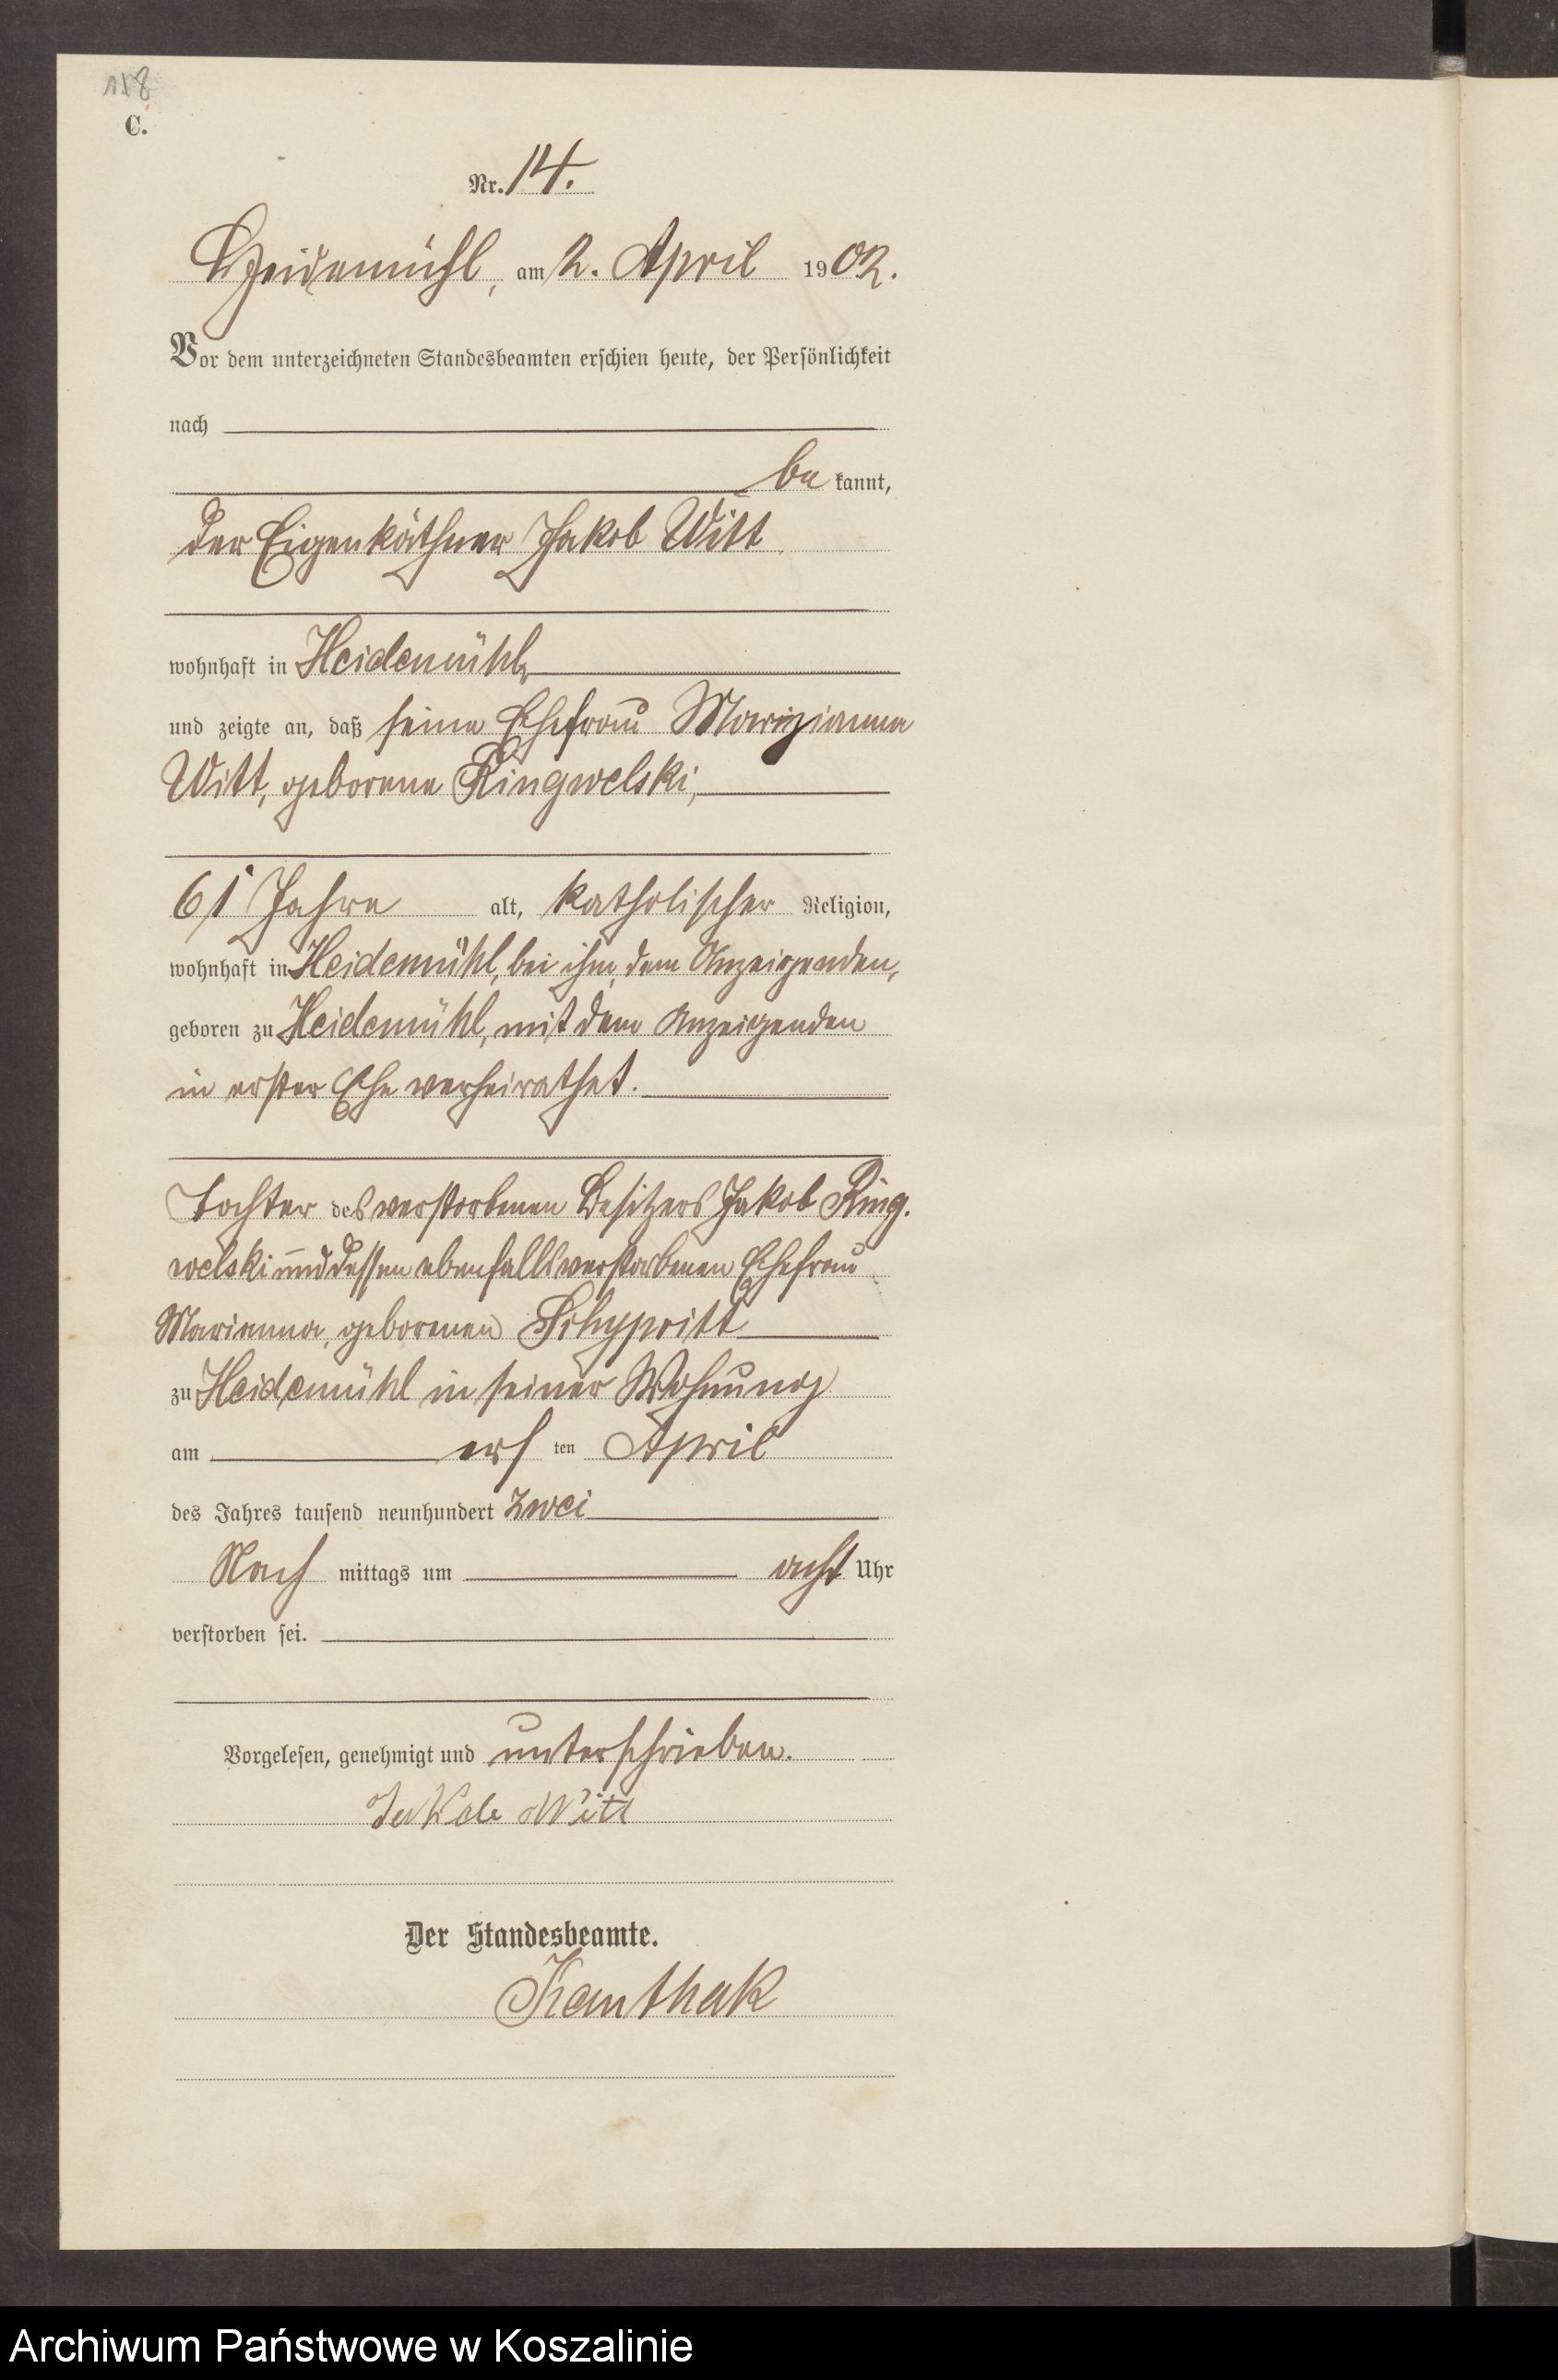 118
C.
Nr. 14.
Heidemühl, am 2. April 1902.
Vor dem unterzeichneten Standesbeamten erschien heute, der Persönlichkeit
nach
be kannt,
der Eigenkäthner Jakob Witt
wohnhaft in Heidemühl,
und zeigte an, daß seine Ehefrau Marianna
Witt, geborene Ringwelski,
61 Jahre alt, katholischer Religion,
wohnhaft in Heidemühl, bei ihm, dem Anzeigenden,
geboren zu Heidemühl, mit dem Anzeigenden
in erster Ehe verheirathet.
Tochter des verstorbenen Besitzers Jakob Ring-
welski und dessen ebenfalls verstorbenen Ehefrau
Marianna, geborenen
zu Heidemühl in seiner Wohnung
am ers ten April
des Jahres tausend neunhundert zwei
Nach mittags um acht Uhr
verstorben sei.
Vorgelesen, genehmigt und unterschrieben.
Jakob Witt
Der Standesbeamte.
Kanthak
Archiwum Państwowe w Koszalinie